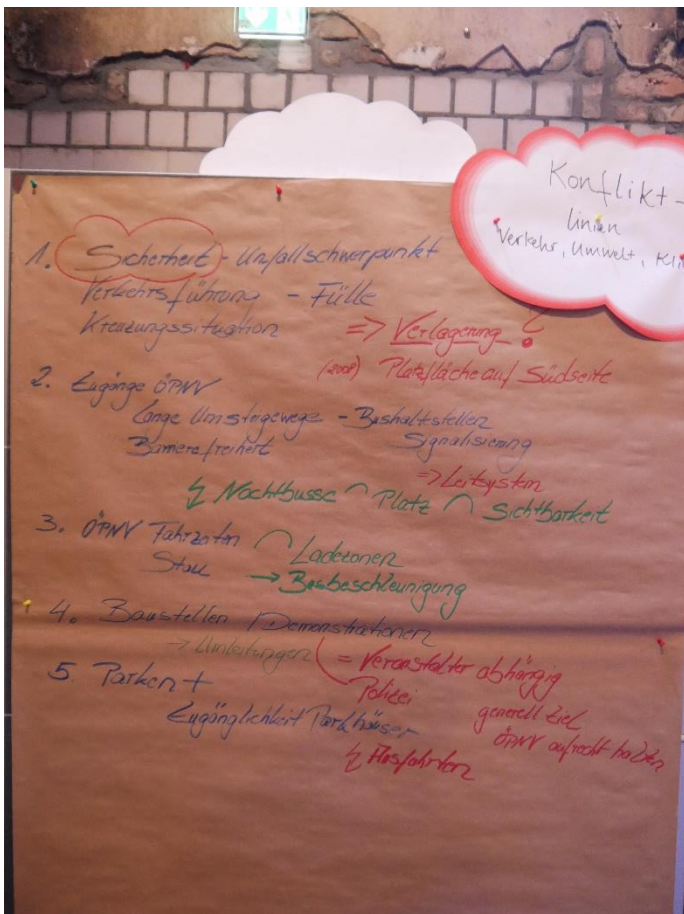 Konflikt-
linien
Verkehr, Umwelt, Kli
1. Sicherheit - Unfallschwerpunkt
Verkehrsführung - Fülle
Kreuzungssituation
=> Verlagerung ?
(2008) Platzfläche auf Südseite
2. Zugänge ÖPNV
Lange Umsteigewege - Bushaltstellen
Barrierefreiheit Signalisierung
=> Leitsystem
↯ Nachtbusse Platz Sichtbarkeit
3. ÖPNV Fahrzeiten Ladezonen
Stau → Busbeschleunigung
4. Baustellen / Demonstrationen
→ Umleitungen = Veranstalter abhängig
Polizei
generell Ziel
ÖPNV aufrecht halten
5. Parken +
Zugänglichkeit Parkhäuser
↯